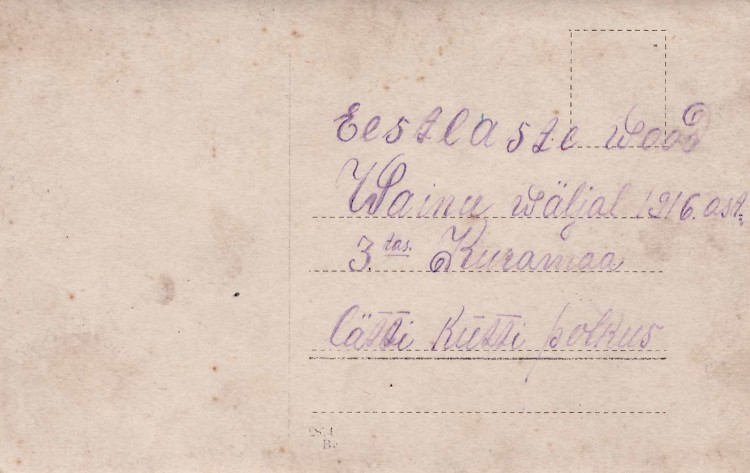 Eestlaste wood
Wainu wäljal 1916. ast.
3. das. Kuramaa
Lätti Kütti polkus